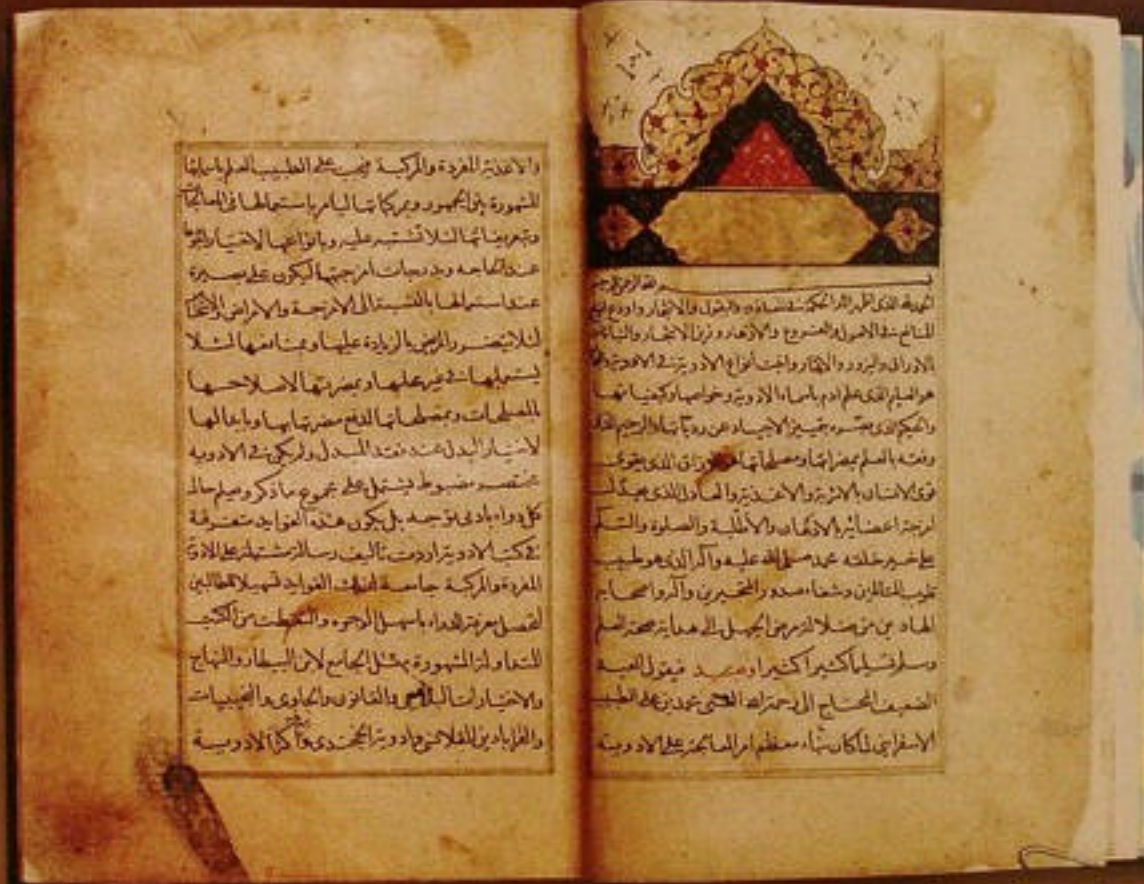 بسم الله الرحمن الرحيم
الحمد لله الذى اظهر اثار الحكمة فى والبقول والاثمار واودع
المنافع فى الاصول والفروع والازهار وزين الاشجار والنبات
بالاوراق والبزور والاثمار انواع الادوية فى
هو العليم الذى علم ادم باسماء الادوية وخواصها وكيفياتها
والحكيم الذى بتمييز الاجياد عن رديّاتها والرحيم الذى
وفقه بالعلم بمضراتها ومصلحاتها هو الرزاق الذى يقوى
قوى الانسان بالاشربة والاغذية والعادل الذى يعدل
امزجة اعضائه بالادهان والاطلية والصلوة والسلام
على خير خلقه محمد صلى الله عليه وآله الذى هو طبيب
قلوب المتالمين وشفاء صدور المتحيرين وآله واصحابه
الهادين من ضلالة مرض الجهل الى هداية صحة العلم
وسلم تسليما كثيرا كثيرا وبعد فيقول العبد
الضعيف المحتاج الى رحمة الله الغنى محمود بن على الطبيب
الاسفراينى لما كان بناء معظم امر المعالجة على الادوية
والاغذية المفردة والمركبة فيجب على الطبيب العلم باسمائها
المشهورة بين الجمهور وبمركباتها ليامر باستعمالها فى المعالجات
وبتعريفاتها لئلا تشتبه عليه وبانواعها لاختيار
عند الحاجة وبدرجات امزجتها ليكون على بصيرة
عند استعمالها بالنسبة الى الامزجة والامراض
لئلا يتضرر المريض بالزيادة عليها وبمنافعها لئلا
يستعملها فى غير محلها وبمضرتها لاصلاحها
بالمصلحات وبمصلحاتها لدفع مضرتها بها وبابدالها
لاختيار البدل عند فقد المبدل ولم يكن فى الادوية
مختصر مضبوط يشتمل على مجموع ما ذكر ويعلم حال
كل دواء بادنى توجه بل يكون هذه الفوايد متفرقة
فى كتب الادوية اردت تاليف رسالة مشتملة على الادوية
المفردة والمركبة جامعة لتلك الفوايد تسهيلا للطالبين
لتحصل معرفة الدواء باسهل الوجوه والتقطت من الكتب
المتداولة المشهورة مثل الجامع لابن البيطار والمنهاج
والاختيارات البديعى والقانون والحاوى والنجيبيات
والقرابادين للقلانسى وادوية الخجندى الادوية